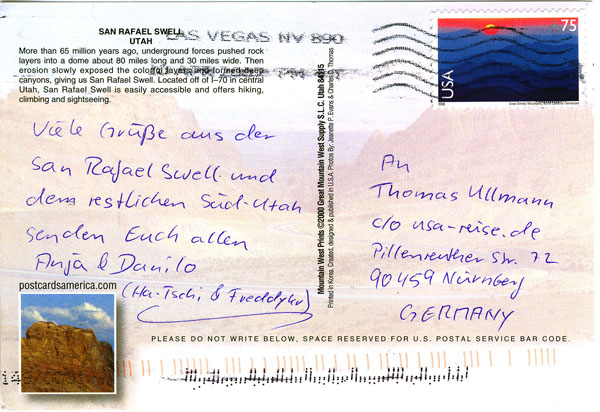 SAN RAFAEL SWELL
UTAH
More than 65 million years ago, underground forces pushed rock
layers into a dome about 80 miles long and 30 miles wide. Then
erosion slowly exposed the colorful layers and formed deep
canyons, giving us San Rafael Swell. Located off of I-70 in central
Utah, San Rafael Swell is easily accessible and offers hiking,
climbing and sightseeing.
LAS VEGAS NV 890
PM
75
USA
Viele Grüße aus der
San Rafael Swell und
dem restlichen Süd-Utah
senden Euch allen
Anja & Danilo
(Ha-Tschi & Freddykr)
postcardsamerica.com
Mountain West Prints ©2000 Great Mountain West Supply S.L.C. Utah 84115
Printed in Korea. Created, designed & published in U.S.A. Photos By: Jeanette P. Evans & Charles D. Thomas
An
Thomas Ullmann
c/o usa-reise.de
Pillenreuther Str. 72
90459 Nürnberg
GERMANY
PLEASE DO NOT WRITE BELOW, SPACE RESERVED FOR U.S. POSTAL SERVICE BAR CODE.